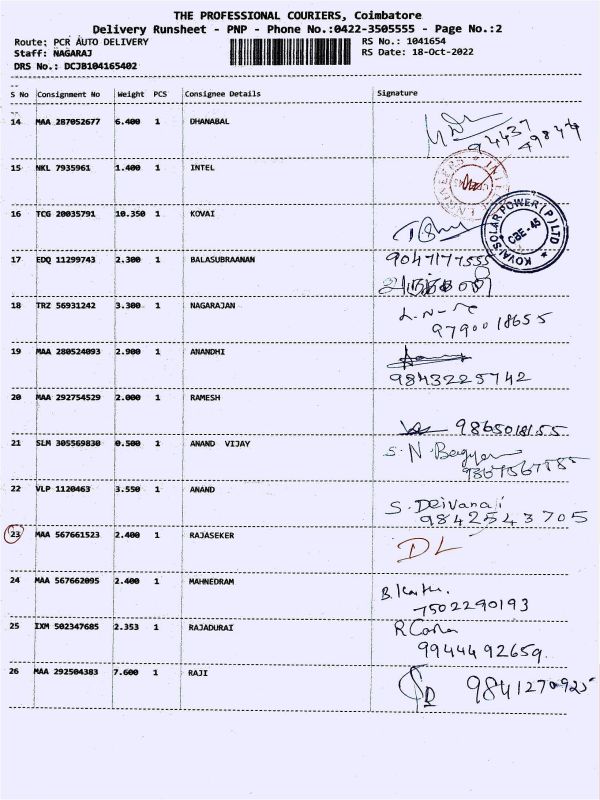 THE PROFESSIONAL COURIERS, Coimbatore
Delivery Runsheet - PNP - Phone No.:0422-3505555 - Page No.:2
Route: PCR AUTO DELIVERY RS No.: 1041654
Staff: NAGARAJ RS Date: 18-Oct-2022
DRS No.: DCJB104165402
S No Consignment No Weight PCS Consignee Details Signature
14 MAA 287052677 6.400 1 DHANABAL
15 NKL 7935961 1.400 1 INTEL
16 TCG 20035791 10.350 1 KOVAI
KOVAI SOLAR POWER (P) LTD
CBE-45
17 EDQ 11299743 2.300 1 BALASUBRAANAN 9047177555
18 TRZ 56931242 3.300 1 NAGARAJAN
9790018655
19 MAA 280524093 2.900 1 ANANDHI
9843225742
20 MAA 292754529 2.000 1 RAMESH
9865018155
21 SLM 305569830 0.500 1 ANAND VIJAY S.N.
22 VLP 1120463 3.550 1 ANAND S. Deivanai
9842543705
23 MAA 567661523 2.400 1 RAJASEKER DL
24 MAA 567662095 2.400 1 MAHNEDRAM
7502290193
25 IXM 502347685 2.353 1 RAJADURAI
9944492659
26 MAA 292504383 7.600 1 RAJI 9841270925